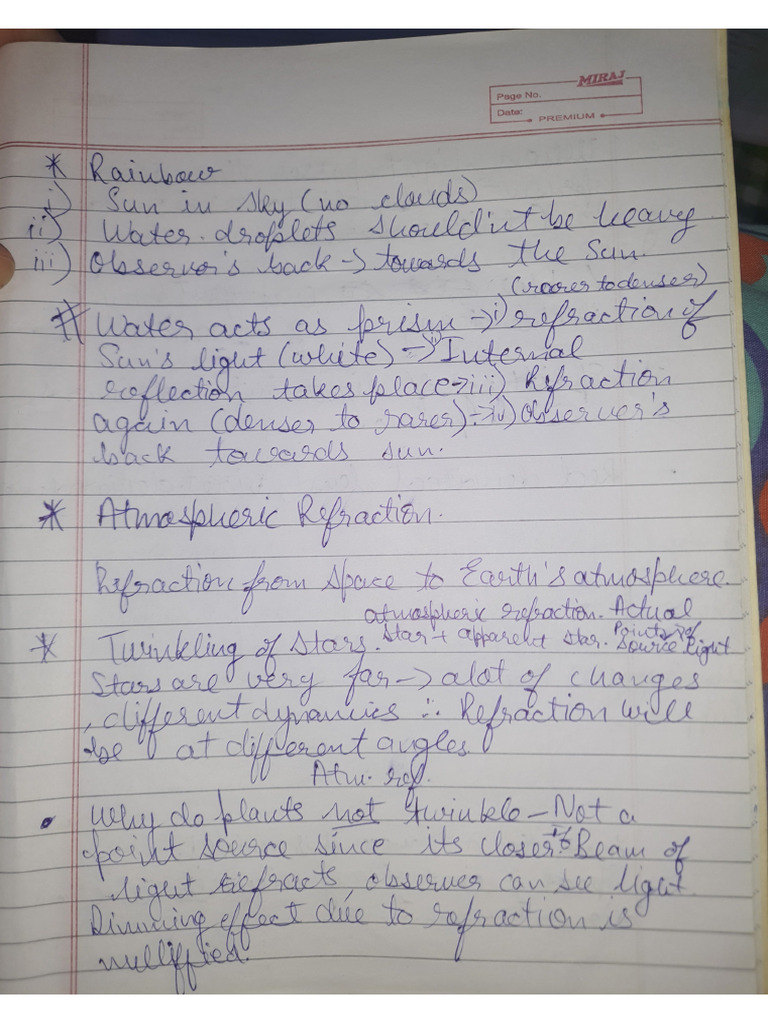 MIRAJ
Page No.
Date:
PREMIUM
* Rainbow
i) Sun in sky (no clouds)
ii) Water droplets shouldn't be heavy
iii) Observor's back → towards the Sun.
(rarer to denser)
# Water acts as prism → i) refraction of
Sun's light (white) → ii) Internal
reflection takes place → iii) Refraction
again (denser to rarer) → iv) Observer's
back towards sun.
* Atmospheric Refraction.
Refraction from space to Earth's atmosphere.
atmospheric refraction. Actual
* Twinkling of Stars. Star + apparent star. Point of source light
Stars are very far → alot of changes
, different dynamics ∴ Refraction will
be at different angles.
Atm. ref.
• Why do plants not twinkle - Not a
point source since its closer ∴ Beam of
light refracts, observer can see light.
Dimming effect due to refraction is
nulliffied.